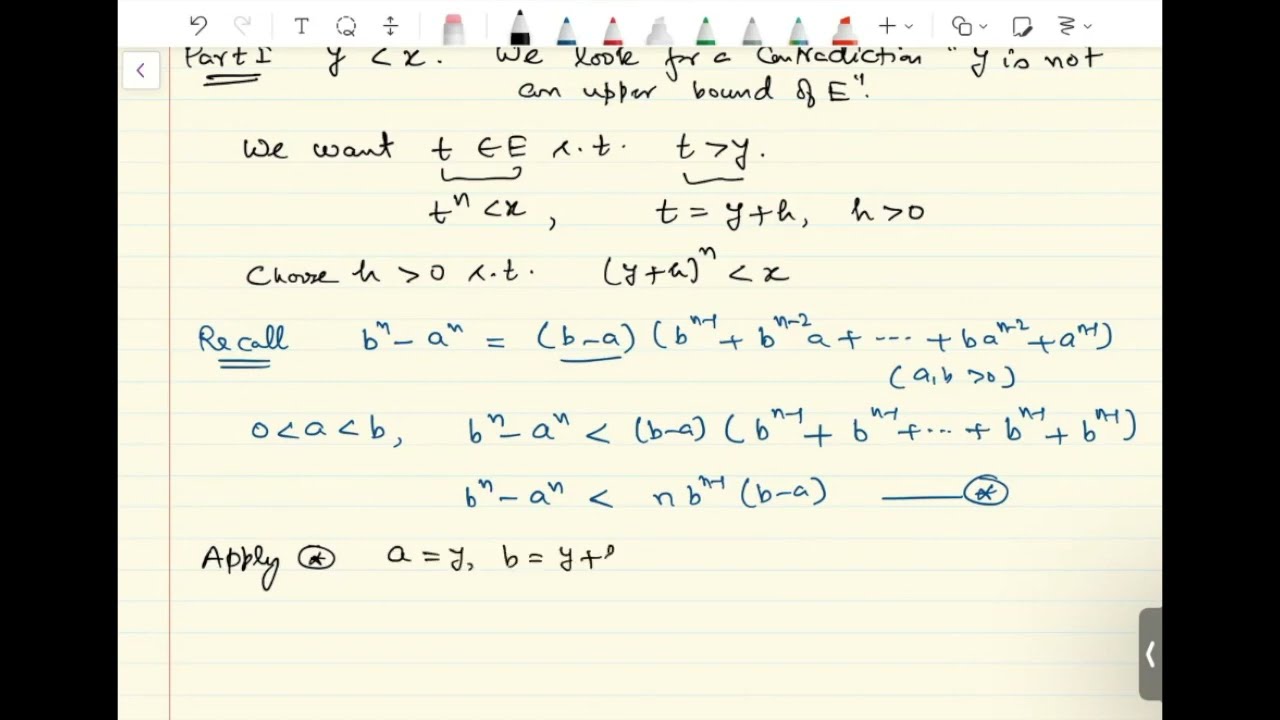 Part I y < x. We look for a contradiction "y is not
an upper bound of E".
We want t ∈ E s.t. t > y.
tⁿ < x, t = y + h, h > 0
Choose h > 0 s.t. (y + h)ⁿ < x
Recall bⁿ - aⁿ = (b - a)(bⁿ⁻¹ + bⁿ⁻²a + ··· + baⁿ⁻² + aⁿ⁻¹)
(a, b > 0)
0 < a < b, bⁿ - aⁿ < (b - a)(bⁿ⁻¹ + bⁿ⁻¹ + ··· + bⁿ⁻¹ + bⁿ⁻¹)
bⁿ - aⁿ < n bⁿ⁻¹ (b - a) —— ⊛
Apply ⊛ a = y, b = y +